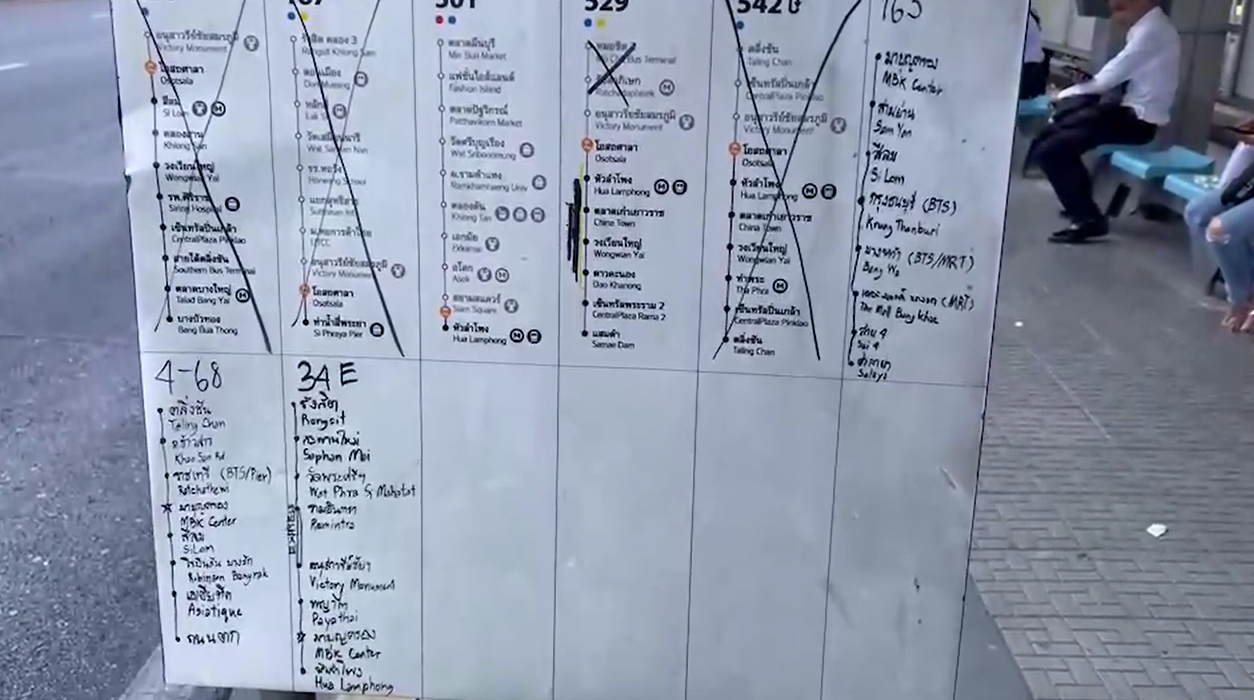 อนุสาวรีย์ชัยสมรภูมิ
Victory Monument
โอสถศาลา
Osotsala
สีลม
Si Lom
คลองสาน
Khlong San
วงเวียนใหญ่
Wongwian Yai
รพ.ศิริราช
Siriraj Hospital
เซ็นทรัลปิ่นเกล้า
CentralPlaza Pinklao
สายใต้ตลิ่งชัน
Southern Bus Terminal
ตลาดบางใหญ่
Talad Bang Yai
บางบัวทอง
Bang Bua Thong
รังสิต คลอง 3
Rangsit Khlong Sam
ดอนเมือง
Don Mueang
หลักสี่
Lak Si
วัดเสมียนนารี
Wat Samian Nari
รร.หอวัง
Horwang School
แยกสุทธิสาร
Sutthisan Int.
ม.หอการค้าไทย
UTCC
อนุสาวรีย์ชัยสมรภูมิ
Victory Monument
โอสถศาลา
Osotsala
ท่าน้ำสี่พระยา
Si Phraya Pier
501
ตลาดมีนบุรี
Min Buri Market
แฟชั่นไอส์แลนด์
Fashion Island
ตลาดปัฐวิกรณ์
Patthavikorn Market
วัดศรีบุญเรือง
Wat Sriboonrueng
ม.รามคำแหง
Ramkhamhaeng Univ
คลองตัน
Khlong Tan
เอกมัย
Ekkamai
อโศก
Asok
สยามสแควร์
Siam Square
หัวลำโพง
Hua Lamphong
529
หมอชิต
Bus Terminal
Ratchadaphisek
อนุสาวรีย์ชัยสมรภูมิ
Victory Monument
โอสถศาลา
Osotsala
หัวลำโพง
Hua Lamphong
ตลาดเก่าเยาวราช
China Town
วงเวียนใหญ่
Wongwian Yai
ดาวคะนอง
Dao Khanong
เซ็นทรัลพระราม 2
CentralPlaza Rama 2
แสมดำ
Samae Dam
542
ตลิ่งชัน
Taling Chan
เซ็นทรัลปิ่นเกล้า
CentralPlaza Pinklao
อนุสาวรีย์ชัยสมรภูมิ
Victory Monument
โอสถศาลา
Osotsala
หัวลำโพง
Hua Lamphong
ตลาดเก่าเยาวราช
China Town
วงเวียนใหญ่
Wongwian Yai
ท่าพระ
Tha Phra
เซ็นทรัลปิ่นเกล้า
CentralPlaza Pinklao
ตลิ่งชัน
Taling Chan
163
มาบุญครอง
MBK Center
สามย่าน
Sam Yan
สีลม
Si Lom
กรุงธนบุรี (BTS)
Krung Thonburi
บางหว้า (BTS/MRT)
Bang Wa
เดอะมอลล์ บางแค (MRT)
The Mall Bang khae
สาย 4
Sai 4
ศาลายา
Salaya
4-68
ตลิ่งชัน
Taling Chan
ข้าวสาร
Khao San Rd
ราชเทวี (BTS/Pier)
Ratchathewi
มาบุญครอง
MBK Center
สีลม
SiLom
โรบินสัน บางรัก
Robinson Bangrak
เอเชียทีค
Asiatique
ถนนตก
34E
รังสิต
Rangsit
สะพานใหม่
Saphan Mai
วัดพระศรีฯ
Wat Phra Si Mahatat
รามอินทรา
Ramintra
อนุสาวรีย์ชัยฯ
Victory Monument
พญาไท
Payathai
มาบุญครอง
MBK Center
หัวลำโพง
Hua Lamphong